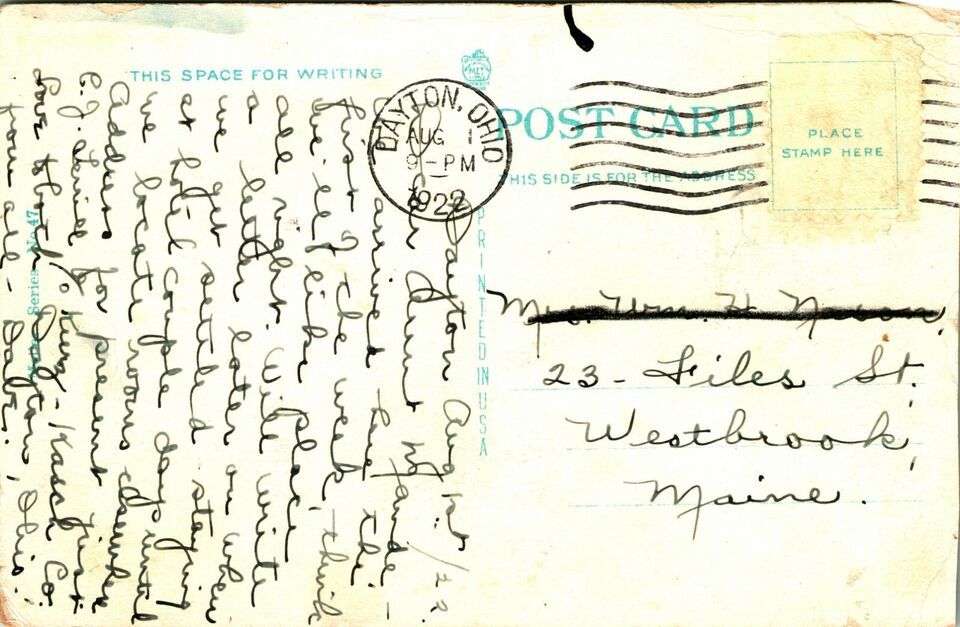 THIS SPACE FOR WRITING
Dayton Aug 1st/22.
Dear Aunt
Arrived here the
first of the week, think
we'll like the place
all right. Will write
a letter later on when
we get settled staying
at hotel couple days until
we locate rooms
Address for present just
C. J. % King - Kasch Co.
Love Dayton, Ohio.
you all -
Series No 47
PRINTED IN USA
DAYTON, OHIO
AUG 1
9-PM
1922
POST CARD
THIS SIDE IS FOR THE ADDRESS
PLACE
STAMP HERE
Mrs. Wm. H. Nason,
23 - Files St.
Westbrook,
Maine.